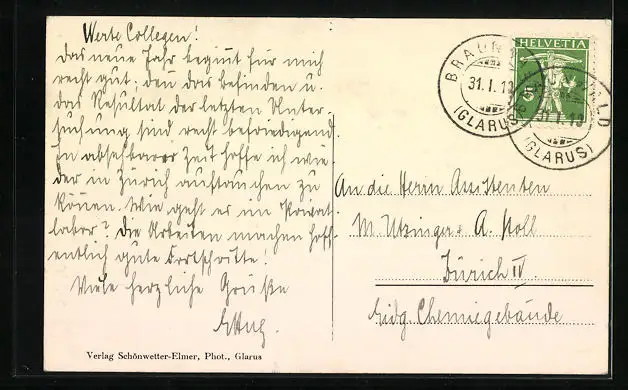 Werte Collegen!
Das neue Jahr beginnt für mich
recht gut; den das befinden u.
das Resultat der letzten Unter-
suchung sind recht befriedigend.
In absehbarer Zeit hoffe ich wie
der in Zürich auftauchen zu
können. Wie geht es im Privat
labor? Die Arbeiten machen hoff-
entlich gute Fortschritte!
Viele herzliche Grüße
Verlag Schönwetter-Elmer, Phot., Glarus
HELVETIA
5
BRAUNWALD
31.I.10
(GLARUS)
BRAUNWALD
31.I.10
(GLARUS)
An die Herrn Assistenten
M. Utzinger & A. Moll
Zürich IV.
Eidg. Chemiegebäude